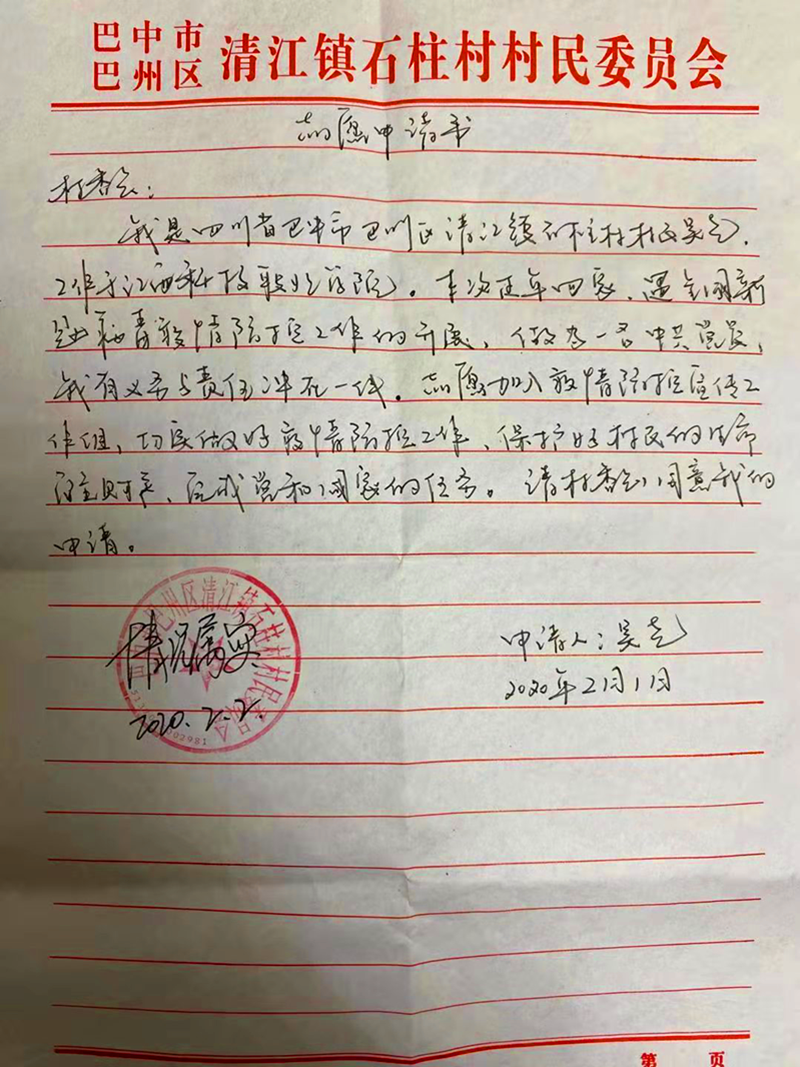 巴中市
巴州区 清江镇石柱村村民委员会
志愿申请书
村委会：
我是四川省巴中市巴州区清江镇石柱村村民吴
工作于江西科技职业学院。本次过年回家，遇全国新
型疫情防控工作的开展，做为一名中共党员，
我有义务与责任冲在一线。志愿加入疫情防控宣传工
作组，切实做好疫情防控工作，保护好村民的生命
财产，完成党和国家的任务。请村委会同意我的
申请。
情况属实
2020.2.2.
巴州区清江镇石柱村村民委员会
申请人：吴
2020年2月1日
第 页